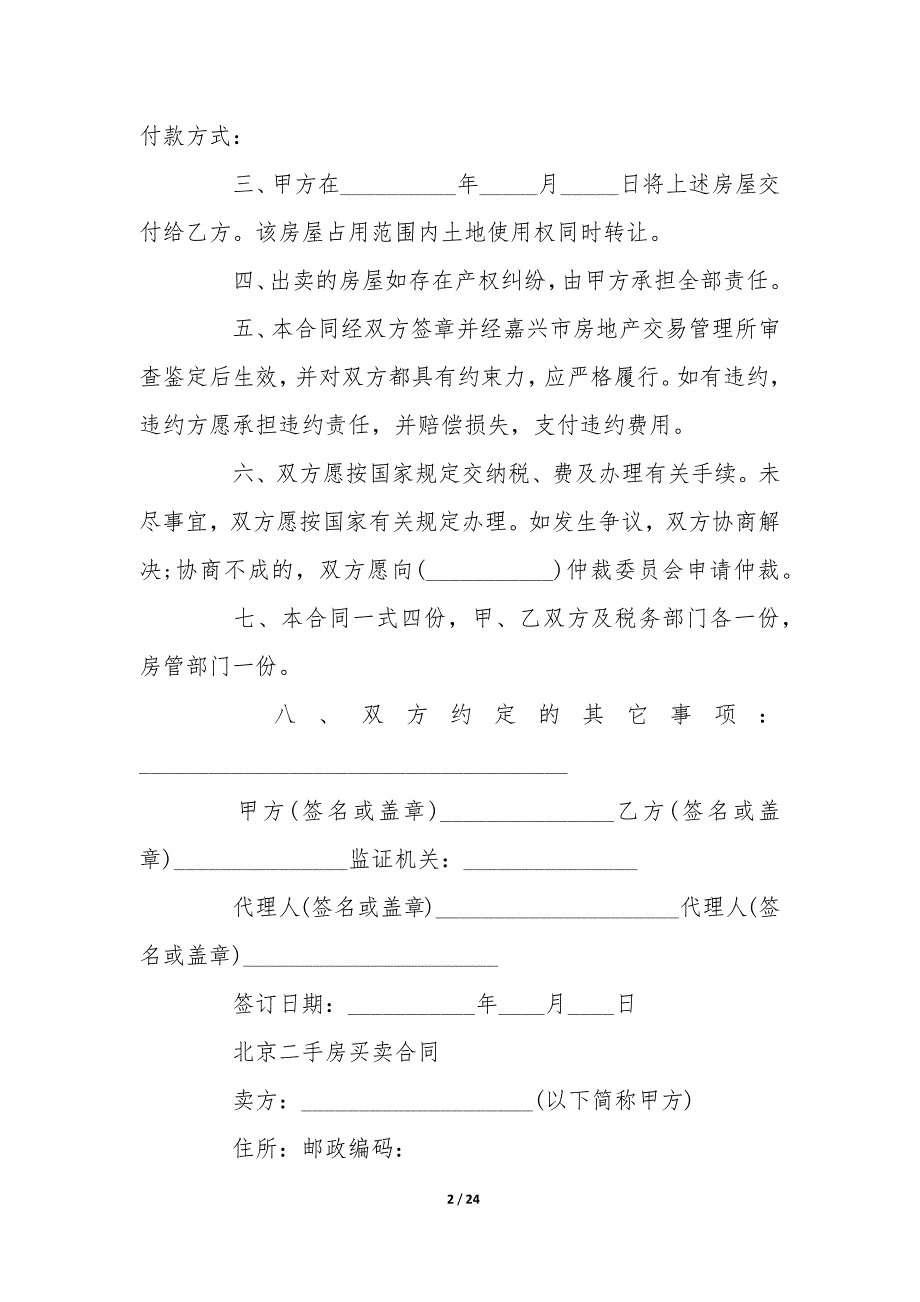 付款方式：
三、甲方在__________年_____月_____日将上述房屋交
付给乙方。该房屋占用范围内土地使用权同时转让。
四、出卖的房屋如存在产权纠纷，由甲方承担全部责任。
五、本合同经双方签章并经嘉兴市房地产交易管理所审
查鉴定后生效，并对双方都具有约束力，应严格履行。如有违约，
违约方愿承担违约责任，并赔偿损失，支付违约费用。
六、双方愿按国家规定交纳税、费及办理有关手续。未
尽事宜，双方愿按国家有关规定办理。如发生争议，双方协商解
决;协商不成的，双方愿向(___________)仲裁委员会申请仲裁。
七、本合同一式四份，甲、乙双方及税务部门各一份，
房管部门一份。
八、双方约定的其它事项：
_____________________________________
甲方(签名或盖章)_______________乙方(签名或盖
章)_______________监证机关：_______________
代理人(签名或盖章)_____________________代理人(签
名或盖章)______________________
签订日期：___________年____月____日
北京二手房买卖合同
卖方：____________________(以下简称甲方)
住所：邮政编码：
2 / 24